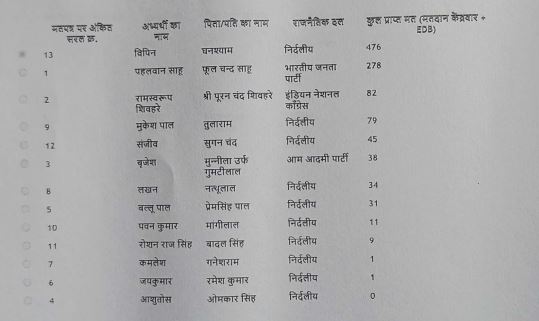 मतपत्र पर अंकित सरल क्र. अभ्यर्थी का नाम पिता/पति का नाम राजनैतिक दल कुल प्राप्त मत (मतदान केंद्रवार + EDB)
13 विपिन घनश्याम निर्दलीय 476
1 पहलवान साहू फूल चन्द साहू भारतीय जनता पार्टी 278
2 रामस्वरूप शिवहरे श्री पूरन चंद शिवहरे इंडियन नेशनल काँग्रेस 82
9 मुकेश पाल तुलाराम निर्दलीय 79
12 संजीव सुगन चंद निर्दलीय 45
3 बृजेश मुन्नीला उर्फ गुमटीलाल आम आदमी पार्टी 38
8 लखन नत्थूलाल निर्दलीय 34
5 बल्लू पाल प्रेमसिंह पाल निर्दलीय 31
10 पवन कुमार मांगीलाल निर्दलीय 11
11 रोशन राज सिंह बादल सिंह निर्दलीय 9
7 कमलेश गनेशराम निर्दलीय 1
6 जयकुमार रमेश कुमार निर्दलीय 1
4 आशुतोस ओमकार सिंह निर्दलीय 0